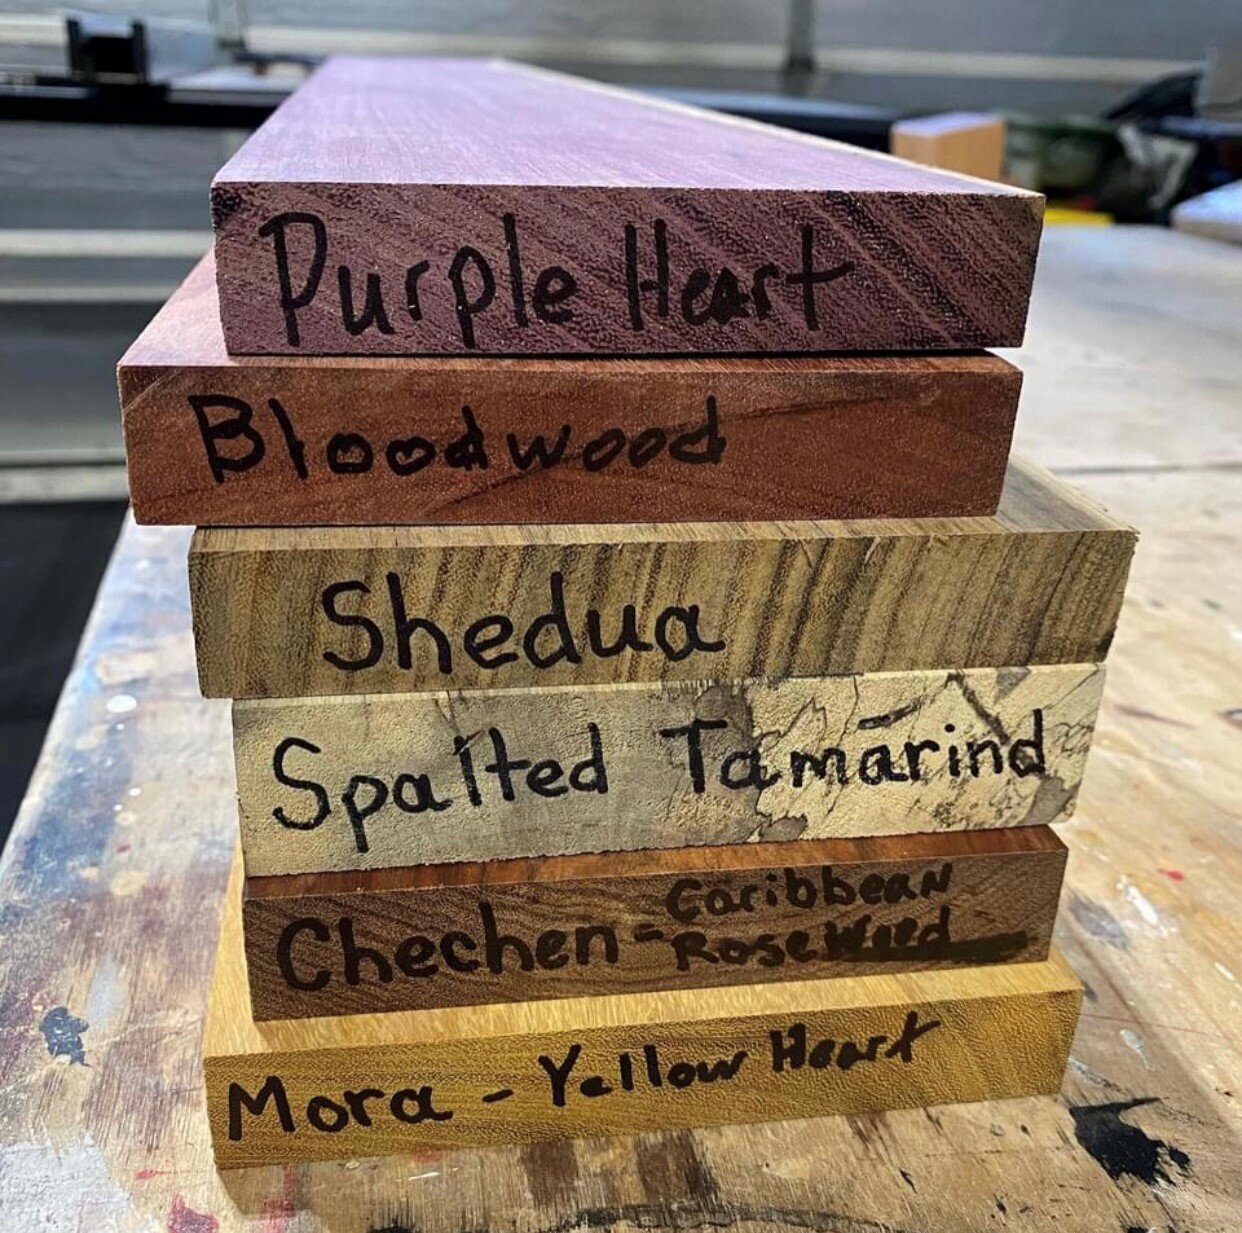 Purple Heart
Bloodwood
Shedua
Spalted Tamarind
Chechen - Caribbean
Rosewood
Mora - Yellow Heart